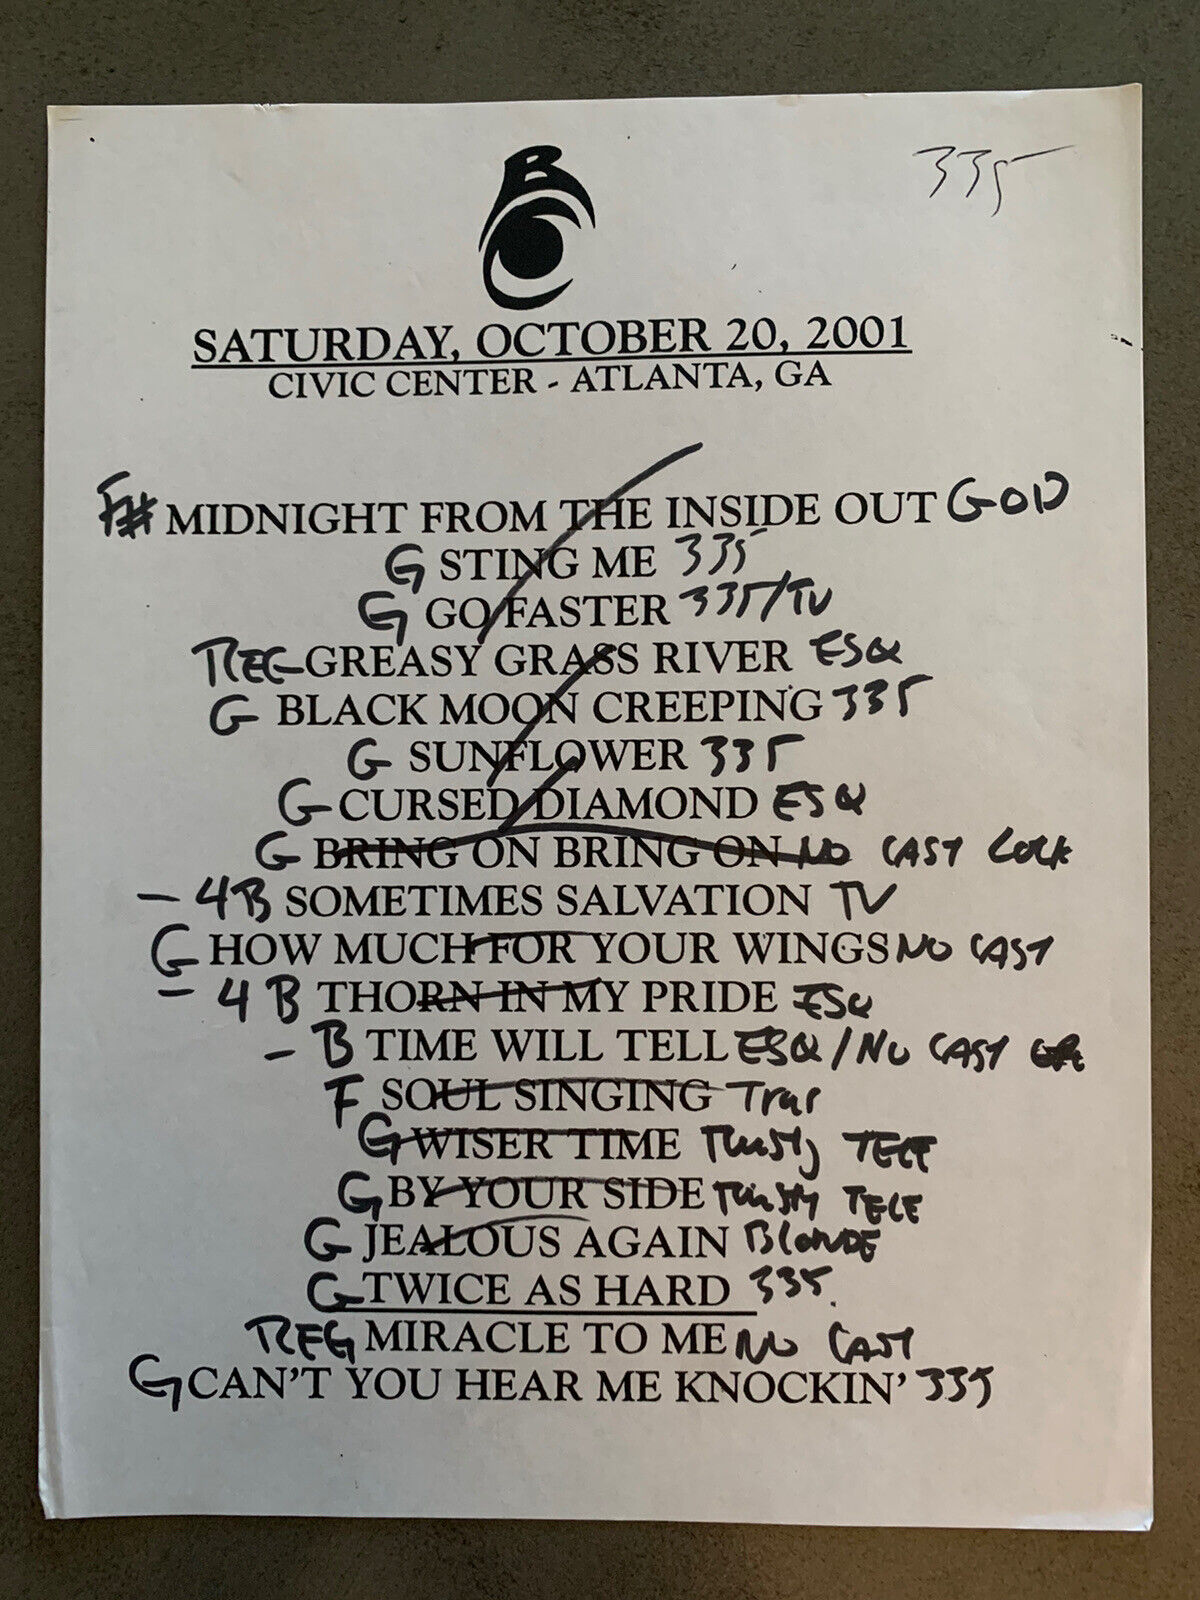 B
335
SATURDAY, OCTOBER 20, 2001
CIVIC CENTER - ATLANTA, GA
F# MIDNIGHT FROM THE INSIDE OUT GOLD
G STING ME 335
G GO FASTER 335/TV
REG GREASY GRASS RIVER ESQ
G BLACK MOON CREEPING 335
G SUNFLOWER 335
G CURSED DIAMOND ESQ
G BRING ON BRING ON NO CAST
- 4B SOMETIMES SALVATION TV
G HOW MUCH FOR YOUR WINGS NO CAST
- 4 B THORN IN MY PRIDE ESQ
- B TIME WILL TELL ESQ/NO CAST
F SOUL SINGING
G WISER TIME TELE
G BY YOUR SIDE TELE
G JEALOUS AGAIN BlONDE
G TWICE AS HARD 335.
REG MIRACLE TO ME NO CAST
G CAN'T YOU HEAR ME KNOCKIN' 335